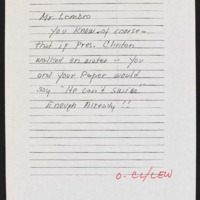 Mr. Lombro
You know of course
that if Pres. Clinton
walked on water - you
and your paper would
say "He can't swim"
Enough Already!!
O-CL/LEW